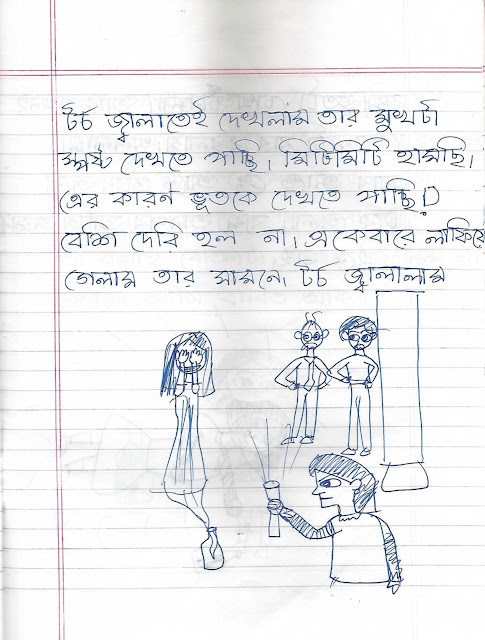 টর্চ জ্বালাতেই দেখলাম তার মুখটা
স্পষ্ট দেখতে পাচ্ছি। মিটিমিটি হাসছি।
এর কারণ ভূতকে দেখতে পাচ্ছি?
বেশি দেরি হল না। একেবারে লাফিয়ে
গেলাম তার সামনে। টর্চ জ্বালালাম